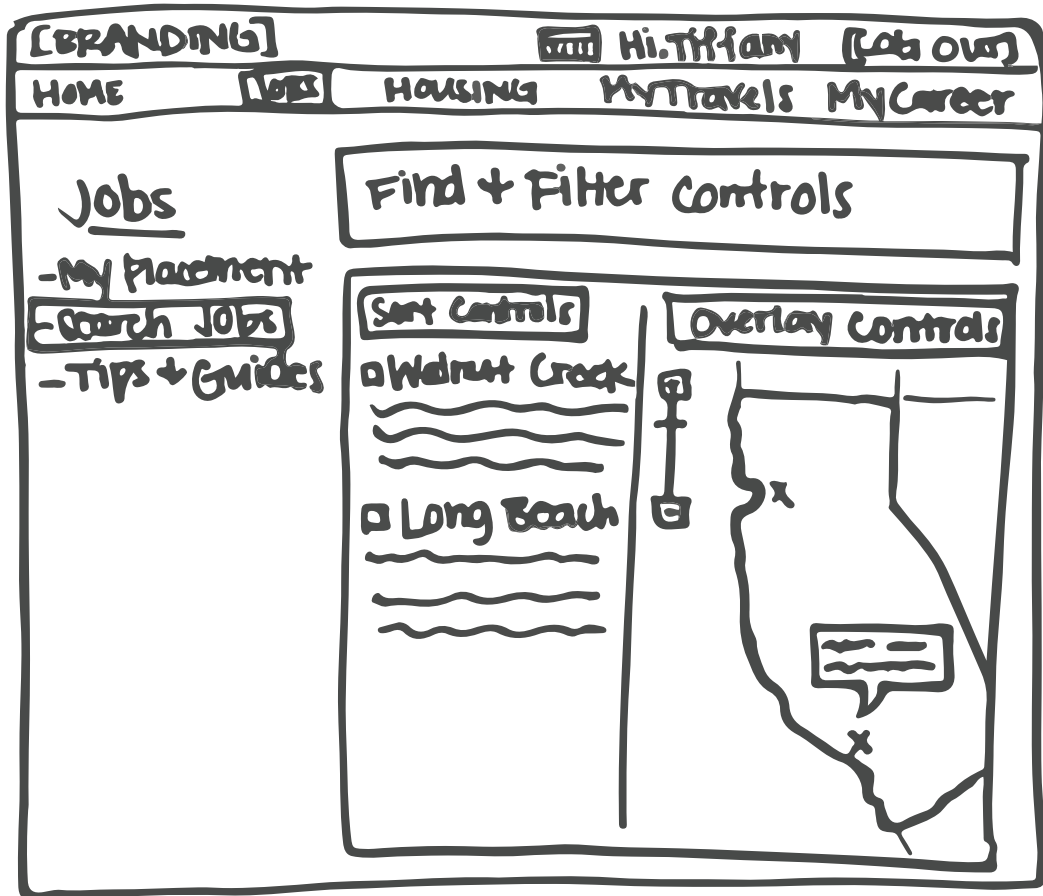 [BRANDING] Hi. Tiffany [Log Out]
HOME Jobs HOUSING MyTravels MyCareer
Jobs
- My Placement
- Search Jobs
- Tips + Guides
Find + Filter Controls
Sort Controls
Walnut Creek
Long Beach
Overlay Controls
+
-
x
x